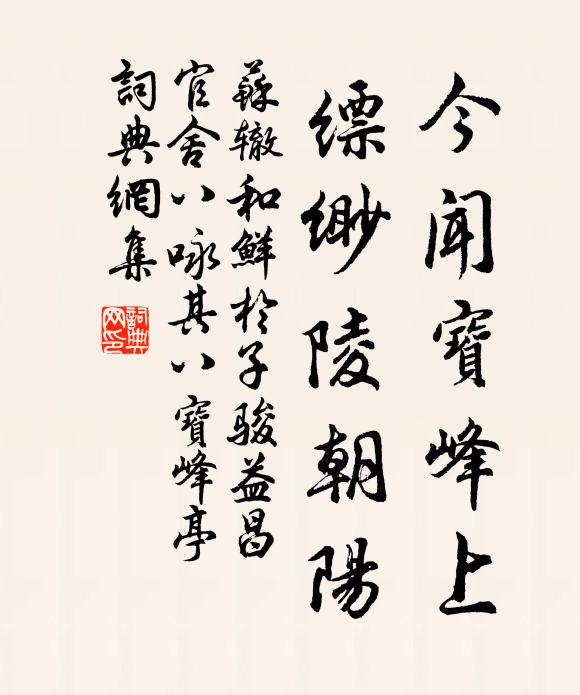 今聞寶峰上
縹緲陵朝陽
蘇轍和鮮於子駿益昌
官舍八咏其八寶峰亭
詞典網集
詞典网印